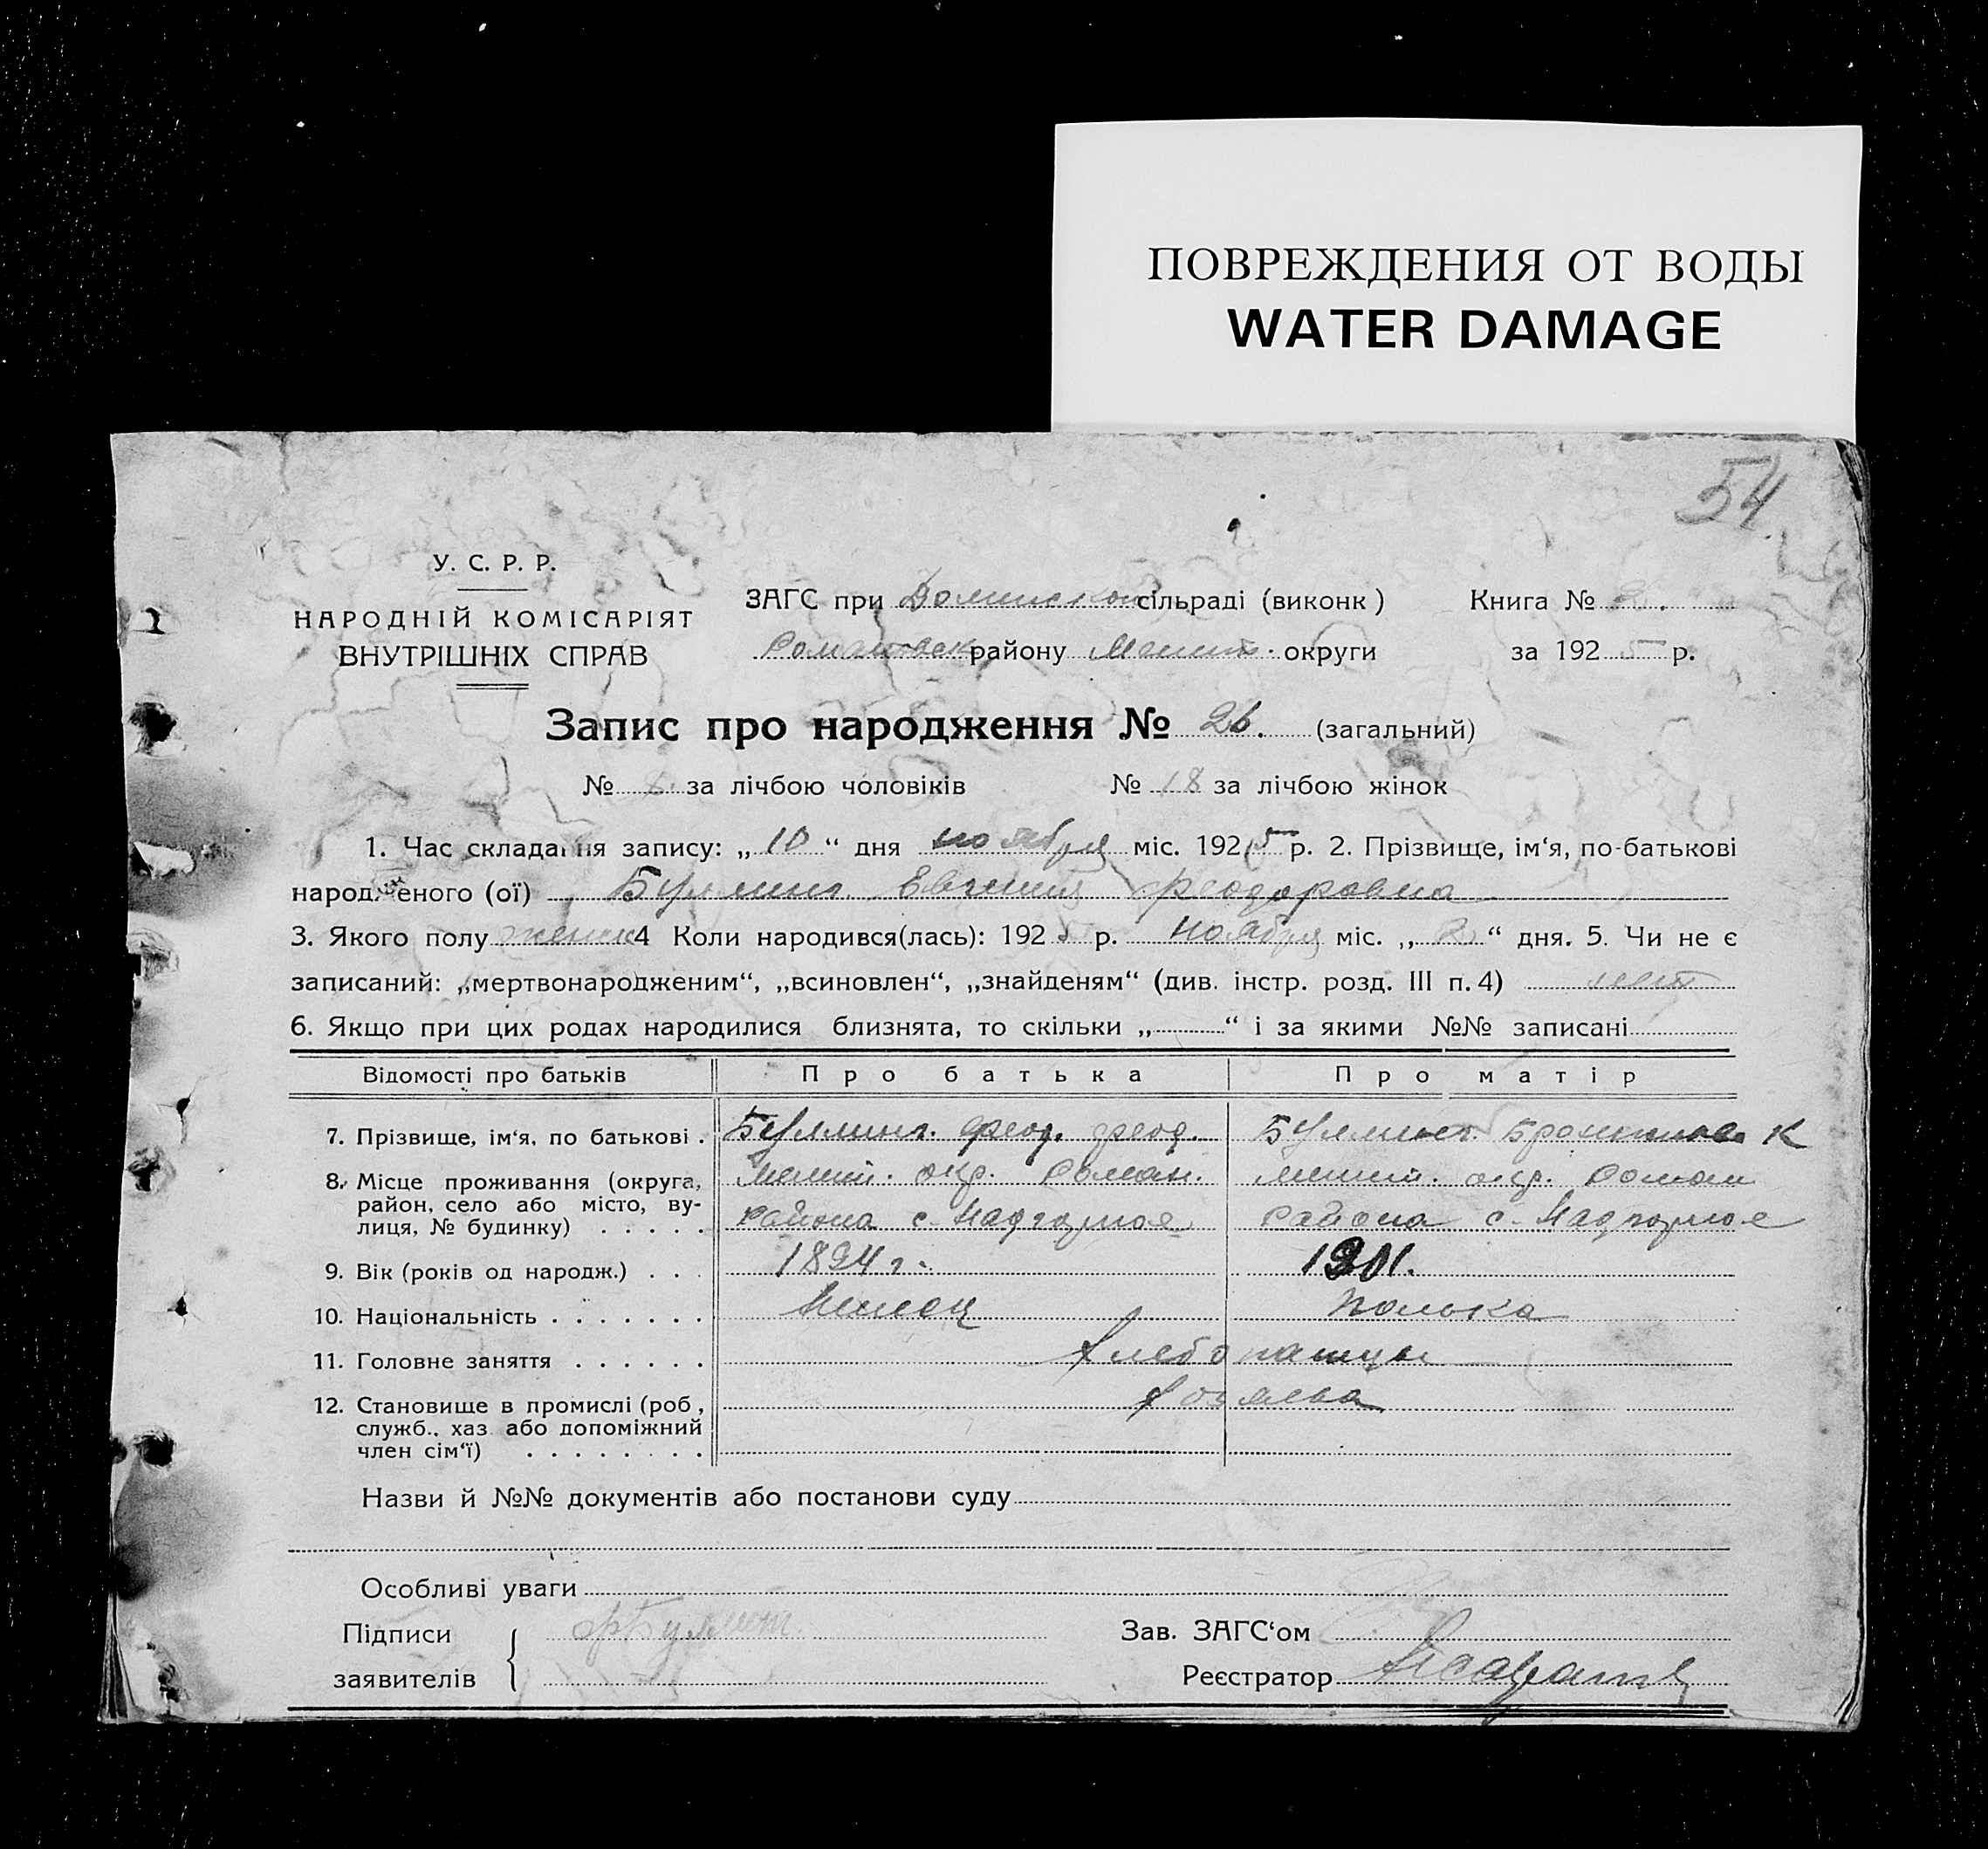 ПОВРЕЖДЕНИЯ ОТ ВОДЫ
WATER DAMAGE
54
У. С. Р. Р.
НАРОДНІЙ КОМІСАРІЯТ
ВНУТРІШНІХ СПРАВ
ЗАГС при сільраді (виконк)
району округи
Книга №
за 1925 р.
Запис про народження № 26. (загальний)
№ за лічбою чоловіків № 18 за лічбою жінок
1. Час складання запису: „10“ дня ноября міс. 1925 р. 2. Прізвище, ім‘я, по-батькові
народженого (ої) Буллинг. Евгения Феодоровна
3. Якого полу женск 4 Коли народився(лась): 1925 р. Ноября міс. „2“ дня. 5. Чи не є
записаний: „мертвонародженим“, „всиновлен“, „знайденям“ (див. інстр. розд. III п. 4) нет
6. Якщо при цих родах народилися близнята, то скільки „ “ і за якими №№ записані
Відомості про батьків Про батька Про матір
7. Прізвище, ім‘я, по батькові . Буллинг. Феод. Феод. Буллинг. К
8. Місце проживання (округа, Мелит. окр. Роман. Мелит. окр. Роман
район, село або місто, ву- района с. района с.
лиця, № будинку) . . . . .
9. Вік (років од народж.) . . . 1894 г. 1901.
10. Національність . . . . . . . Немец Полька
11. Головне заняття . . . . . . Хлебопашцы
12. Становище в промислі (роб, Хозяева
служб., хаз або допоміжний
член сім‘ї) . . . . . . . .
Назви й №№ документів або постанови суду
Особливі уваги
Підписи Ф Буллинг.
заявителів
Зав. ЗАГС‘ом
Реєстратор